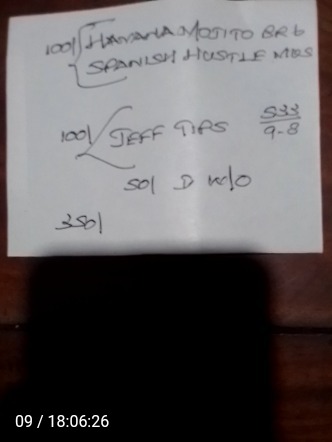 100/ HAVANA MOJITO BRB
SPANISH HUSTLE MBS
100/ JEFF TIPS 533/9-8
50/ D W/O
350/
09 / 18:06:26